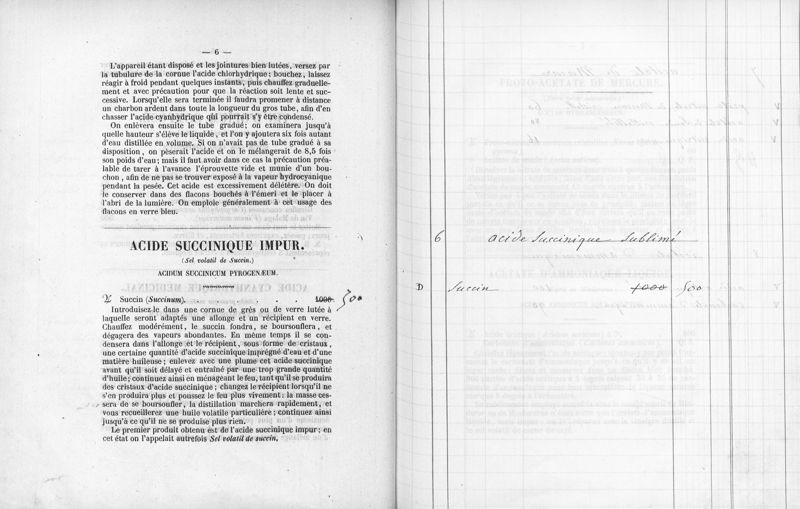 — 6 —
L'appareil étant disposé et les jointures bien lutées, versez par
la tubulure de la cornue l'acide chlorhydrique; bouchez, laissez
réagir à froid pendant quelques instants, puis chauffez graduelle-
ment et avec précaution pour que la réaction soit lente et suc-
cessive. Lorsqu'elle sera terminée il faudra promener à distance
un charbon ardent dans toute la longueur du gros tube, afin d'en
chasser l'acide cyanhydrique qui pourrait s'y être condensé.
On enlèvera ensuite le tube gradué; on examinera jusqu'à
quelle hauteur s'élève le liquide, et l'on y ajoutera six fois autant
d'eau distillée en volume. Si on n'avait pas de tube gradué à sa
disposition, on pèserait l'acide et on le mélangerait de 8,5 fois
son poids d'eau; mais il faut avoir dans ce cas la précaution préa-
lable de tarer à l'avance l'éprouvette vide et munie d'un bou-
chon, afin de ne pas se trouver exposé à la vapeur hydrocyanique
pendant la pesée. Cet acide est excessivement délétère. On doit
le conserver dans des flacons bouchés à l'émeri et le placer à
l'abri de la lumière. On emploie généralement à cet usage des
flacons en verre bleu.
ACIDE SUCCINIQUE IMPUR.
(Sel volatil de Succin.)
ACIDUM SUCCINICUM PYROGENÆUM.
♃ Succin (Succinum). . . . 1000 500
Introduisez-le dans une cornue de grès ou de verre lutée à
laquelle seront adaptés une allonge et un récipient en verre.
Chauffez modérément, le succin fondra, se boursouflera, et
dégagera des vapeurs abondantes. En même temps il se con-
densera dans l'allonge et le récipient, sous forme de cristaux,
une certaine quantité d'acide succinique imprégné d'eau et d'une
matière huileuse; enlevez avec une plume cet acide succinique
avant qu'il soit délayé et entraîné par une trop grande quantité
d'huile; continuez ainsi en ménageant le feu, tant qu'il se produira
des cristaux d'acide succinique; changez le récipient lorsqu'il ne
s'en produira plus et poussez le feu plus vivement: la masse ces-
sera de se boursoufler, la distillation marchera rapidement, et
vous recueillerez une huile volatile particulière; continuez ainsi
jusqu'à ce qu'il ne se produise plus rien.
Le premier produit obtenu est de l'acide succinique impur; en
cet état on l'appelait autrefois Sel volatil de succin.
6 acide succinique sublimé
D Succin 1000 500